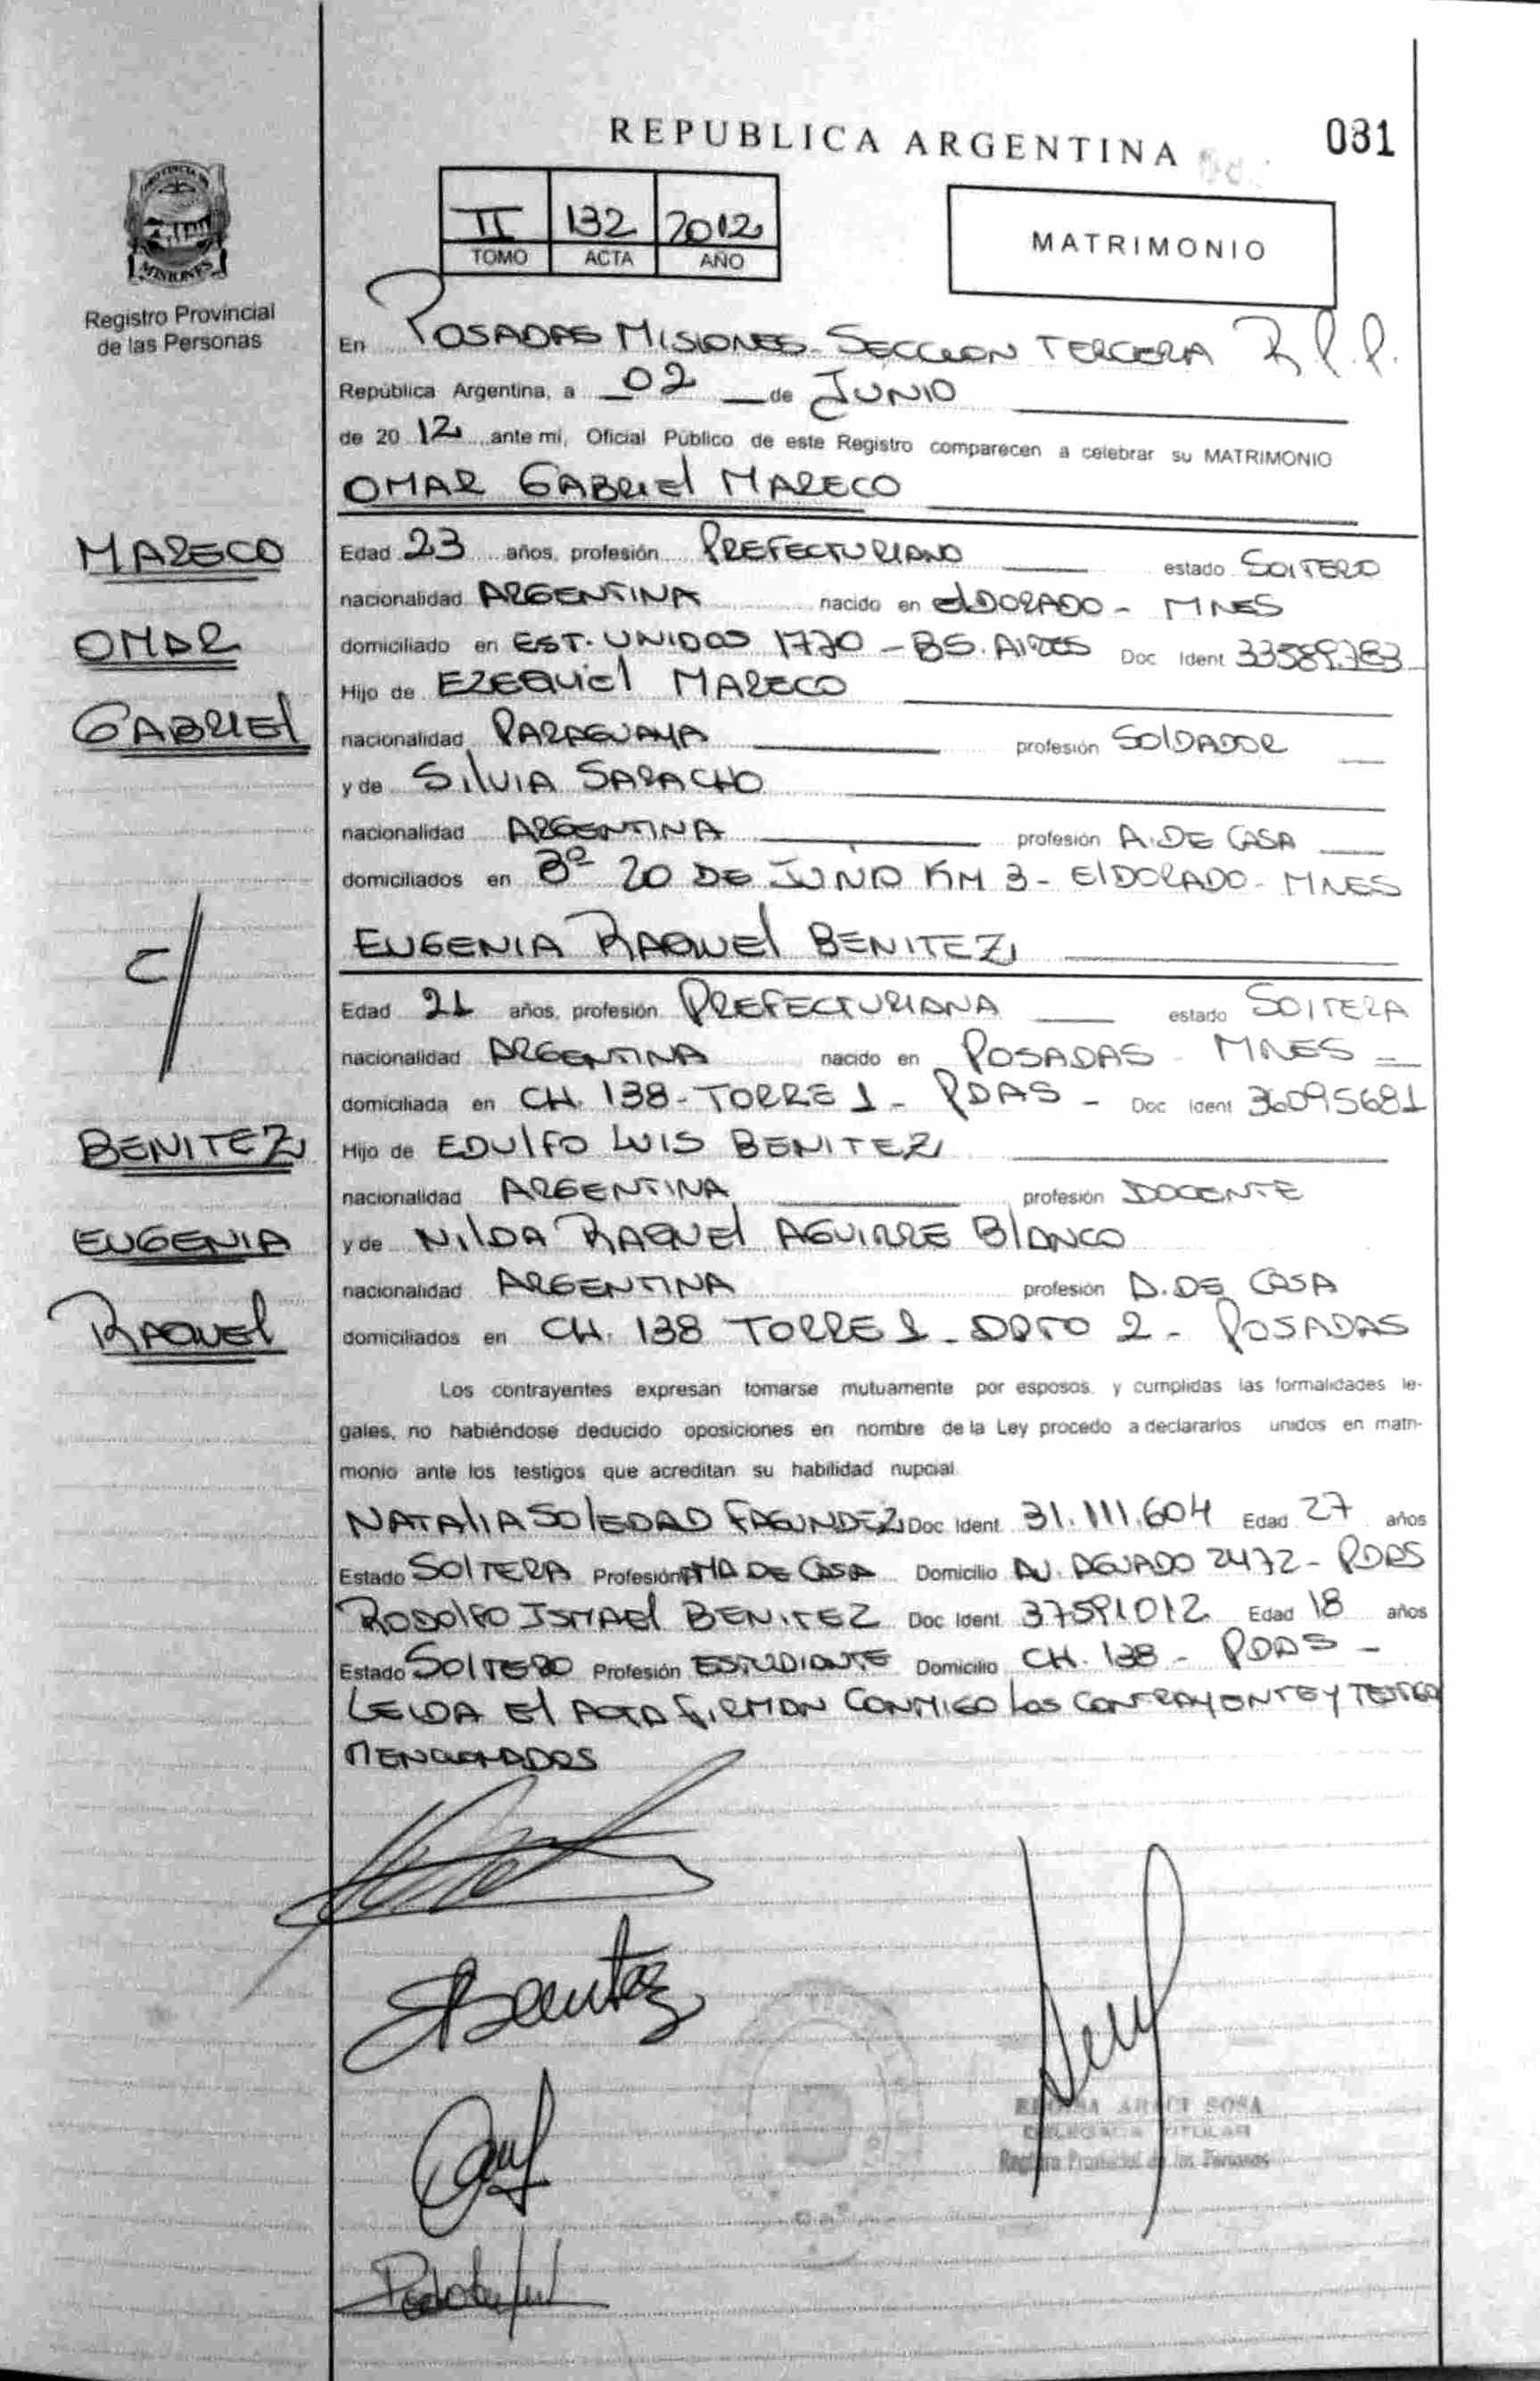 REPUBLICA ARGENTINA
031
II 132 2012
TOMO ACTA AÑO
MATRIMONIO
MISIONES
Registro Provincial
de las Personas
En POSADAS MISIONES- SECCION TERCERA R.P.P.
República Argentina, a 02 de JUNIO
de 2012 ante mi, Oficial Público de este Registro comparecen a celebrar su MATRIMONIO
OMAR GABRIEl MARECO
MARECO
OMAR
GABRIEl
Edad 23 años, profesión PREFECTURIANO estado SOlTERO
nacionalidad ARGENTINA nacido en ElDORADO - MNES
domiciliado en EST. UNIDOS 1770 - BS. AIRES Doc Ident 33589783
Hijo de EZEQUIEl MARECO
nacionalidad PARAGUAYA profesión SOlDADOR
y de SIlVIA SARACHO
nacionalidad ARGENTINA profesión A. DE CASA
domiciliados en Bº 20 DE JUNIO KM 3 - ElDORADO - MNES
c/
EUGENIA RAQUEl BENITEZ
BENITEZ
EUGENIA
RAQUEl
Edad 21 años, profesión PREFECTURIANA estado SOlTERA
nacionalidad ARGENTINA nacido en POSADAS - MNES
domiciliada en CH. 138 - TORRE 1 - PDAS - Doc Ident 36095681
Hijo de EDUlFO LUIS BENITEZ
nacionalidad ARGENTINA profesión DOCENTE
y de NIlDA RAQUEl AGUIRRE BlANCO
nacionalidad ARGENTINA profesión A. DE CASA
domiciliados en CH. 138 TORRE 1 - DPTO 2 - POSADAS
Los contrayentes expresan tomarse mutuamente por esposos, y cumplidas las formalidades le-
gales, no habiéndose deducido oposiciones en nombre de la Ley procedo a declararlos unidos en matri-
monio ante los testigos que acreditan su habilidad nupcial.
NATAlIA SOlEDAD FAGUNDEZ Doc Ident 31.111.604 Edad 27 años
Estado SOlTERA Profesión AMA DE CASA Domicilio AV. AGUADO 2472 - PDAS
RODOlFO ISMAEl BENITEZ Doc Ident 37591012 Edad 18 años
Estado SOlTERO Profesión ESTUDIANTE Domicilio CH. 138 - PDAS -
LEIDA El ACTA FIRMAN CONMIGO lOS CONTRAYENTE Y TESTIGO
MENCIONADOS
Benitez
ARACI SOSA
TITULAR
Registro Provincial de las Personas